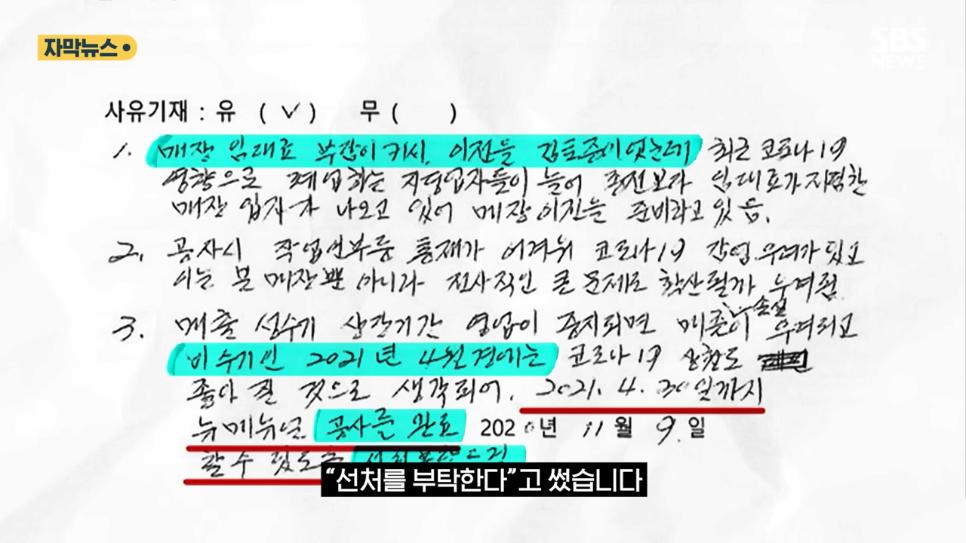 자막뉴스
SBS
NEWS
사유기재 : 유 ( ✓ ) 무 ( )
1. 매장 임대료 부담이 커서, 이전을 검토중이었는데 최근 코로나19
영향으로 폐업하는 자영업자들이 늘어 종전보다 임대료가 저렴한
매장 입지가 나오고 있어 매장이전을 준비하고 있음.
2. 공사시 작업인부들 통제가 어려워 코로나19 감염 우려가 있고
이는 본 매장뿐 아니라 전사적인 큰 문제로 확산될까 두려움
3. 매출 성수기 상당기간 영업이 중지되면 매출 손실이 우려되고
비수기인 2021년 4월경에는 코로나19 상황도
좋아 질 것으로 생각되어, 2021. 4. 30일까지
리뉴얼 공사를 완료 2020년 11월 9일
할 수 있도록
“선처를 부탁한다”고 썼습니다